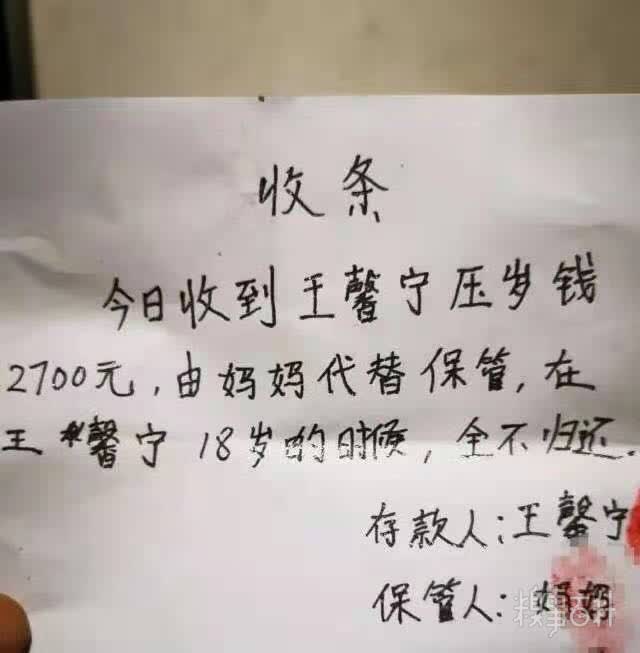 收条
今日收到王馨宁压岁钱
2700元,由妈妈代替保管,在
王馨宁18岁的时候,全不归还.
存款人:王馨宁
保管人:妈妈